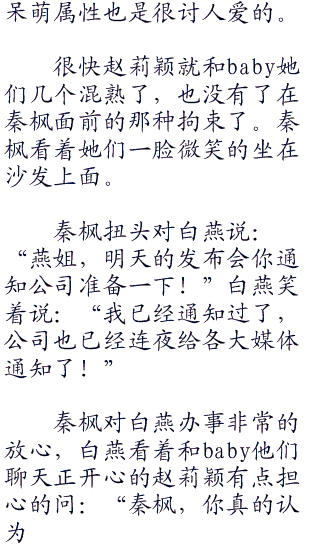 呆萌属性也是很讨人爱的。
很快赵莉颖就和baby她
们几个混熟了，也没有了在
秦枫面前的那种拘束了。秦
枫看着她们一脸微笑的坐在
沙发上面。
秦枫扭头对白燕说：
“燕姐，明天的发布会你通
知公司准备一下！”白燕笑
着说：“我已经通知过了，
公司也已经连夜给各大媒体
通知了！”
秦枫对白燕办事非常的
放心，白燕看着和baby他们
聊天正开心的赵莉颖有点担
心的问：“秦枫，你真的认
为